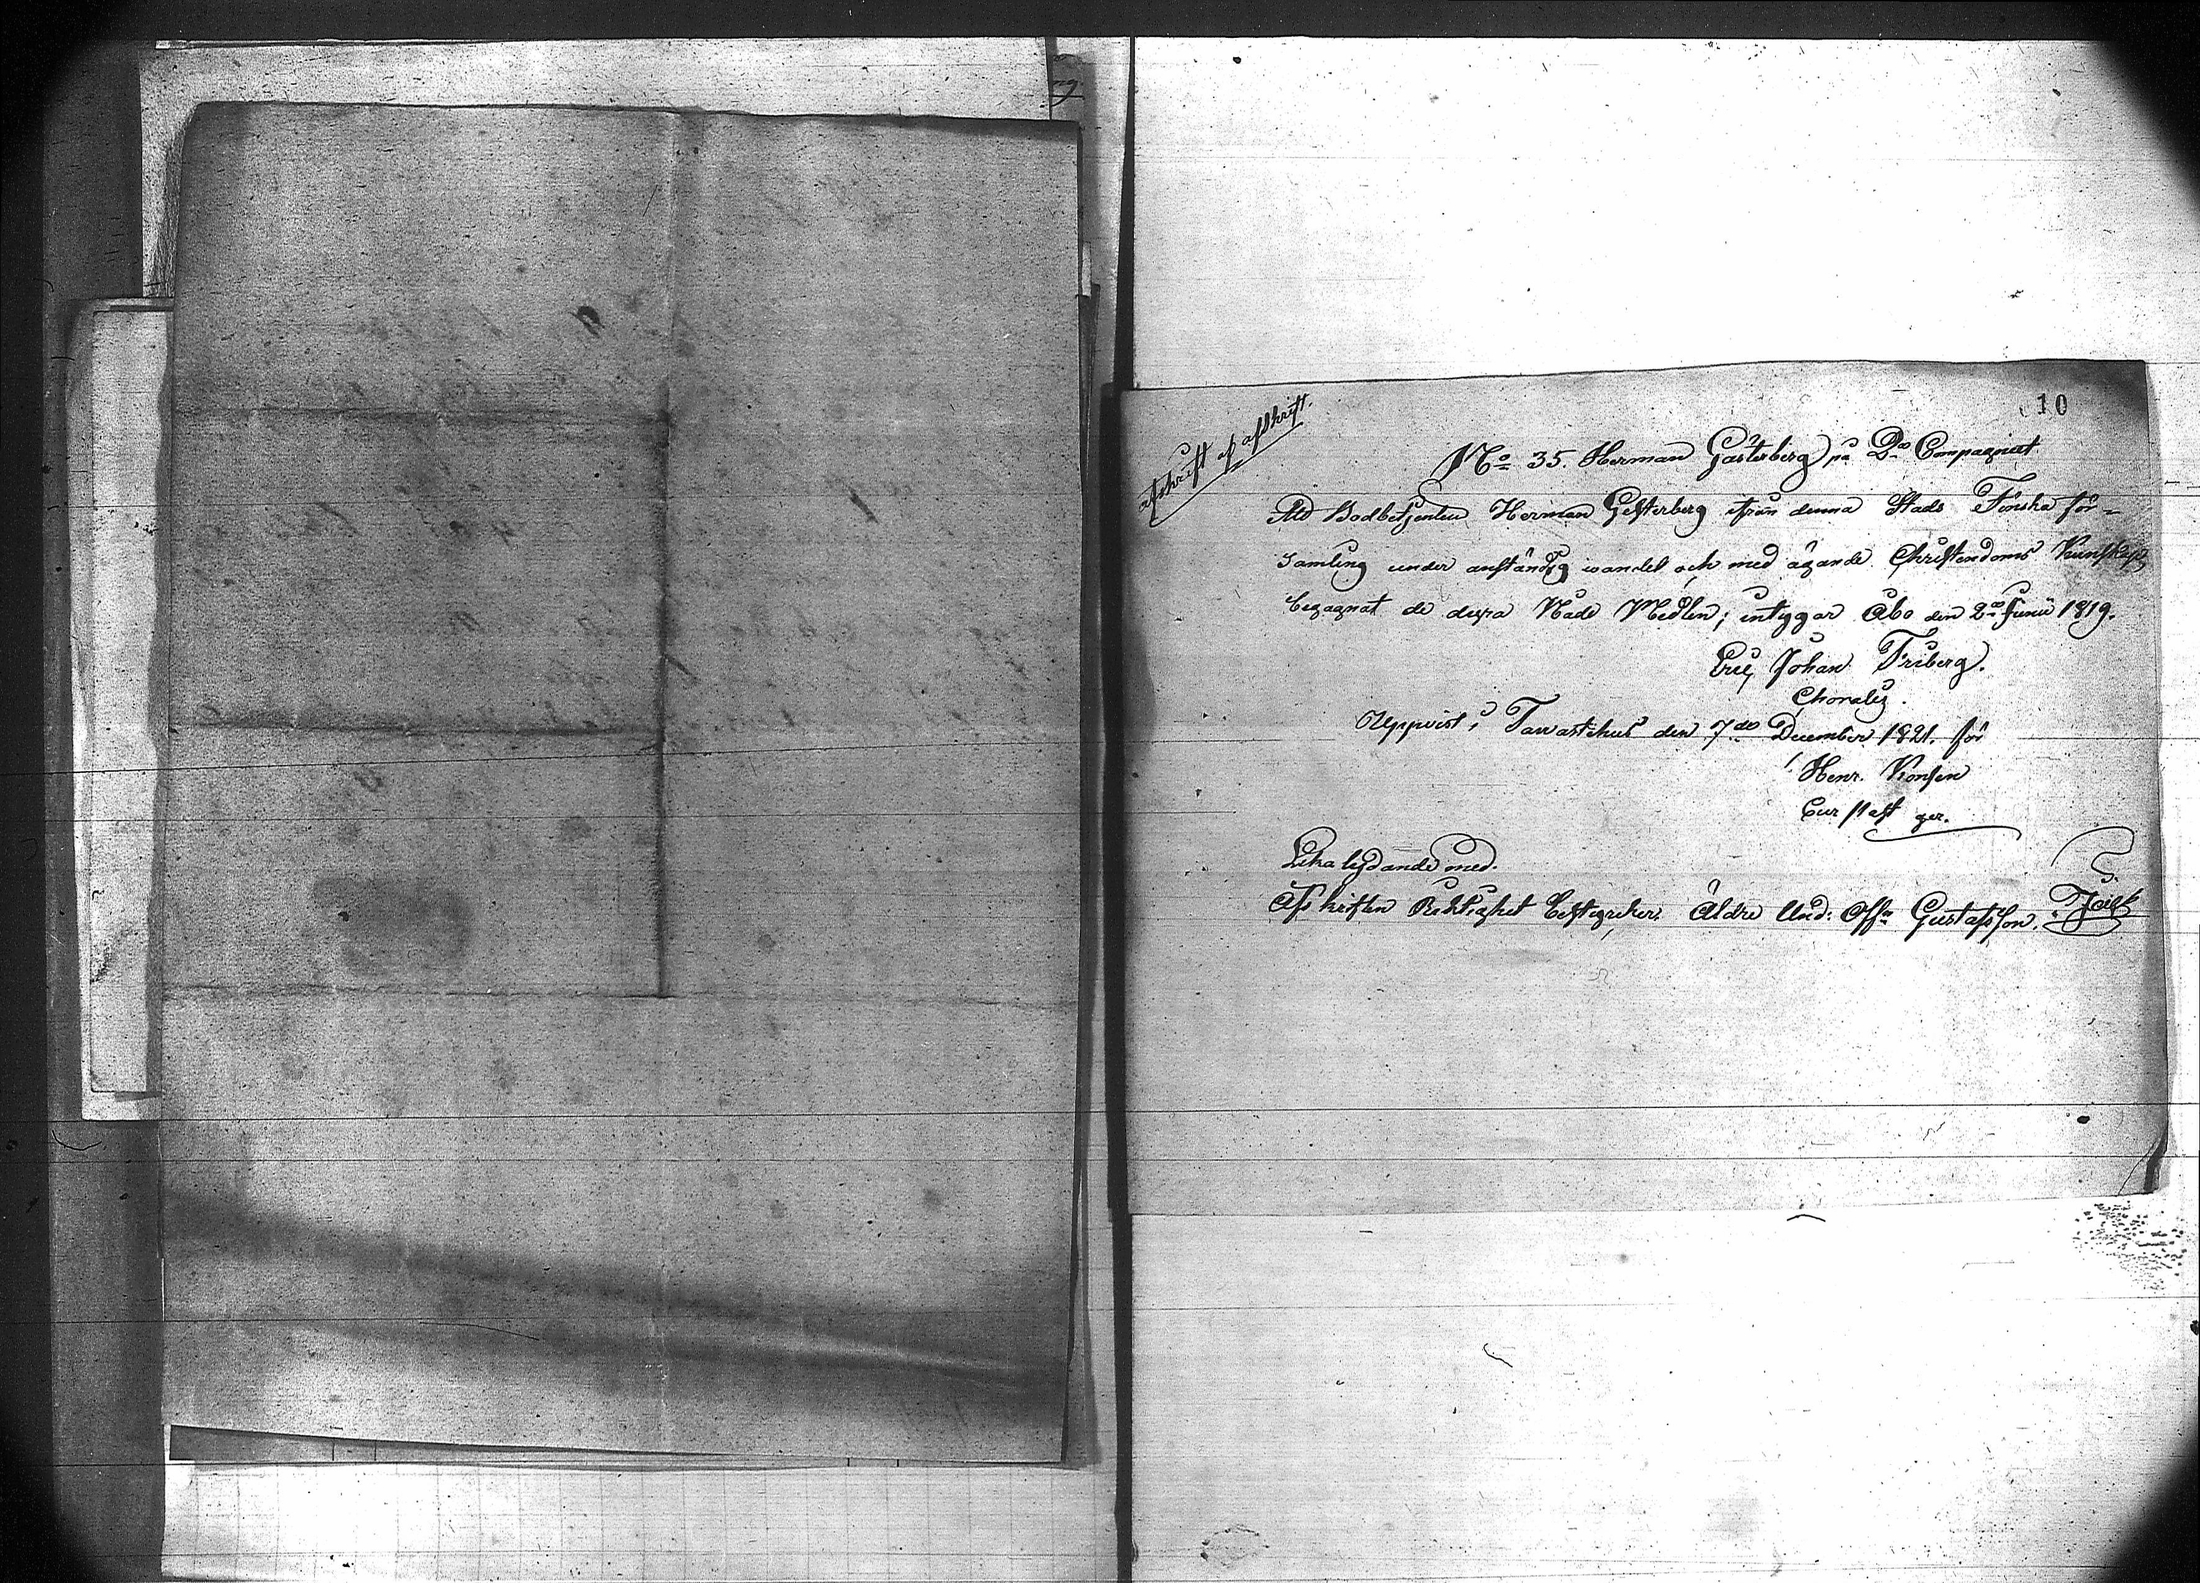 10
afskrift af afskrift.
No 35. Herman Gästerberg på 2a Compagniet
Att Bodbetjenten Herman Gesterberg ifrån denna Stads Finska för-
samling under anständig wandel och med ägande Christendoms Kunskap
begagnat de dyra Nåde Medlen; intygar Åbo den 2a Junii 1819.
Eric Johan Friberg.
Uppvist i Tavastehus den 7de December 1821. för
Henr.
Lika lydande med.
Afskriften Riktighet Äldre Und: Off Gustafsson.